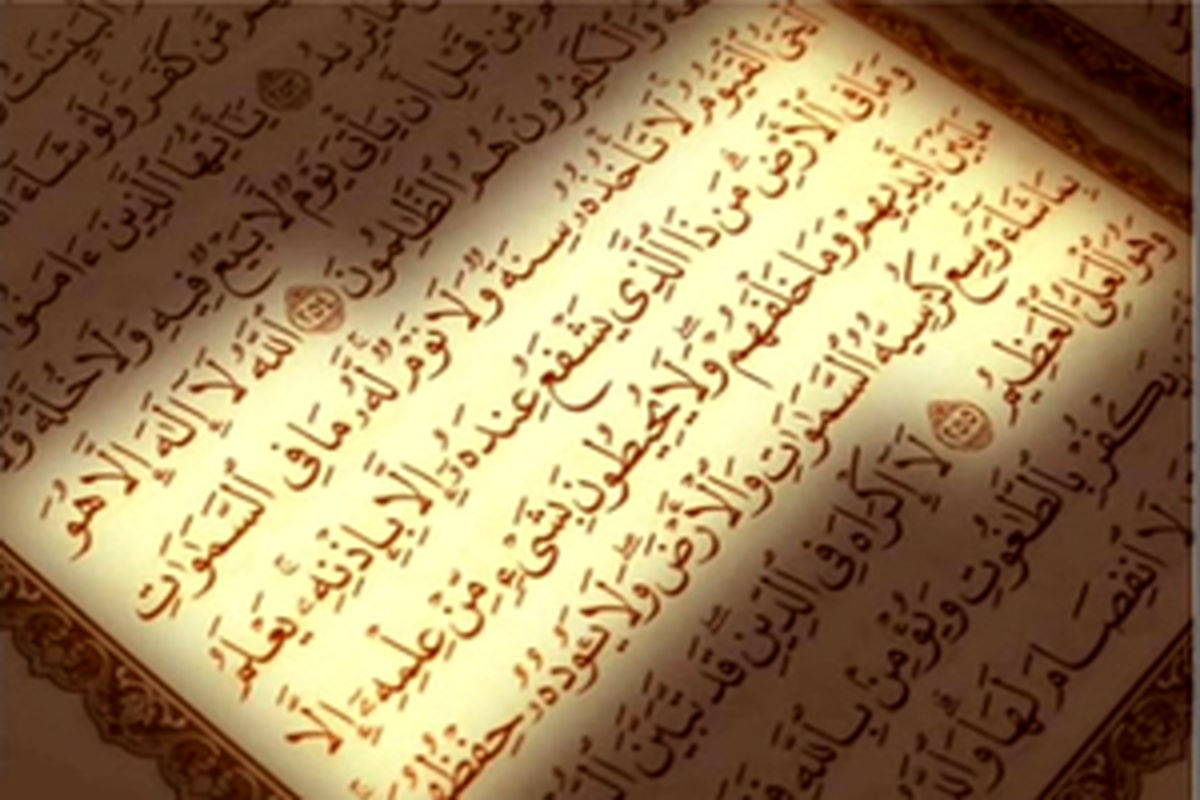 مَّن كَفَرَ وَلَوْ شَآءَ
يُرِيدُ ٢٥٣ يَٰٓأَيُّهَا ٱلَّذِينَ ءَامَنُوٓا۟
مِّن قَبْلِ أَن يَأْتِىَ يَوْمٌ لَّا بَيْعٌ فِيهِ وَلَا خُلَّةٌ
وَٱلْكَٰفِرُونَ هُمُ ٱلظَّٰلِمُونَ ٢٥٤ ٱللَّهُ لَآ إِلَٰهَ إِلَّا هُوَ
ٱلْحَىُّ ٱلْقَيُّومُ لَا تَأْخُذُهُۥ سِنَةٌ وَلَا نَوْمٌ لَّهُۥ مَا فِى ٱلسَّمَٰوَٰتِ
وَمَا فِى ٱلْأَرْضِ مَن ذَا ٱلَّذِى يَشْفَعُ عِندَهُۥٓ إِلَّا بِإِذْنِهِۦ يَعْلَمُ
مَا بَيْنَ أَيْدِيهِمْ وَمَا خَلْفَهُمْ وَلَا يُحِيطُونَ بِشَىْءٍ مِّنْ عِلْمِهِۦٓ إِلَّا
بِمَا شَآءَ وَسِعَ كُرْسِيُّهُ ٱلسَّمَٰوَٰتِ وَٱلْأَرْضَ وَلَا يَـُٔودُهُۥ حِفْظُهُمَا
وَهُوَ ٱلْعَلِىُّ ٱلْعَظِيمُ ٢٥٥ لَآ إِكْرَاهَ فِى ٱلدِّينِ قَد تَّبَيَّنَ
يَكْفُرْ بِٱلطَّٰغُوتِ وَيُؤْمِنۢ بِٱللَّهِ
لَا ٱنفِصَامَ لَهَا وَٱللَّهُ